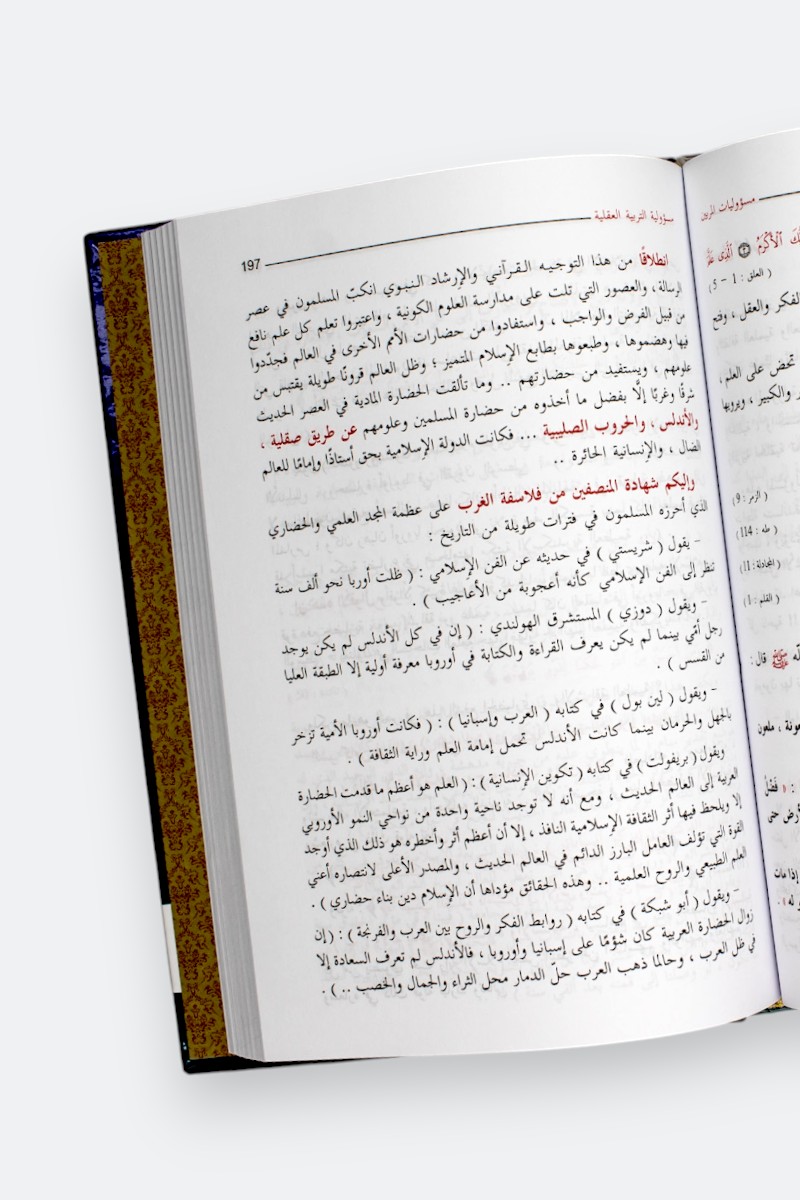 مسؤوليات المربين
ـكَ ٱلْأَكْرَمُ ۝ ٱلَّذِى عَلَّمَ
( العلق : 1 – 5 )
الفكر والعقل ، وفتح
تحض على العلم ،
والكبير ، ويرويها
( الزمر : 9 )
( طه : 114 )
( المجادلة : 11 )
( القلم : 1 )
ﷺ قال :
ملعونة ، ملعون
: « فضل
الأرض حتى
إذا مات
له » .
مسؤولية التربية العقلية
197
انطلاقًا من هذا التوجيه القرآني والإرشاد النبوي انكبّ المسلمون في عصر
الرسالة ، والعصور التي تلت على مدارسة العلوم الكونية ، واعتبروا تعلم كل علم نافع
من قبيل الفرض والواجب ، واستفادوا من حضارات الأمم الأخرى في العالم فجدّدوا
فيها وهضموها ، وطبعوها بطابع الإسلام المتميز ؛ وظل العالم قرونًا طويلة يقتبس من
علومهم ، ويستفيد من حضارتهم .. وما تألقت الحضارة المادية في العصر الحديث
شرقًا وغربًا إلَّا بفضل ما أخذوه من حضارة المسلمين وعلومهم عن طريق صقلية ،
والأندلس ، والحروب الصليبية ... فكانت الدولة الإسلامية بحق أستاذًا وإمامًا للعالم
الضال ، والإنسانية الحائرة ..
وإليكم شهادة المنصفين من فلاسفة الغرب على عظمة المجد العلمي والحضاري
الذي أحرزه المسلمون في فترات طويلة من التاريخ :
– يقول ( شريستي ) في حديثه عن الفن الإسلامي : ( ظلت أوربا نحو ألف سنة
تنظر إلى الفن الإسلامي كأنه أعجوبة من الأعاجيب ) .
– ويقول ( دوزي ) المستشرق الهولندي : ( إن في كل الأندلس لم يكن يوجد
رجل أمّي بينما لم يكن يعرف القراءة والكتابة في أوروبا معرفة أولية إلا الطبقة العليا
من القسس ) .
– ويقول ( لين بول ) في كتابه ( العرب وإسبانيا ) : ( فكانت أوروبا الأمية تزخر
بالجهل والحرمان بينما كانت الأندلس تحمل إمامة العلم وراية الثقافة ) .
ويقول ( بريفولت ) في كتابه ( تكوين الإنسانية ) : ( العلم هو أعظم ما قدمت الحضارة
العربية إلى العالم الحديث ، ومع أنه لا توجد ناحية واحدة من نواحي النمو الأوروبي
إلا ويلحظ فيها أثر الثقافة الإسلامية النافذ ، إلا أن أعظم أثر وأخطره هو ذلك الذي أوجد
القوة التي تؤلف العامل البارز الدائم في العالم الحديث ، والمصدر الأعلى لانتصاره أعني
العلم الطبيعي والروح العلمية .. وهذه الحقائق مؤداها أن الإسلام دين بناء حضاري ) .
– ويقول ( أبو شبكة ) في كتابه ( روابط الفكر والروح بين العرب والفرنجة ) : ( إن
زوال الحضارة العربية كان شؤمًا على إسبانيا وأوروبا ، فالأندلس لم تعرف السعادة إلا
في ظل العرب ، وحالما ذهب العرب حلّ الدمار محل الثراء والجمال والخصب .. ) .